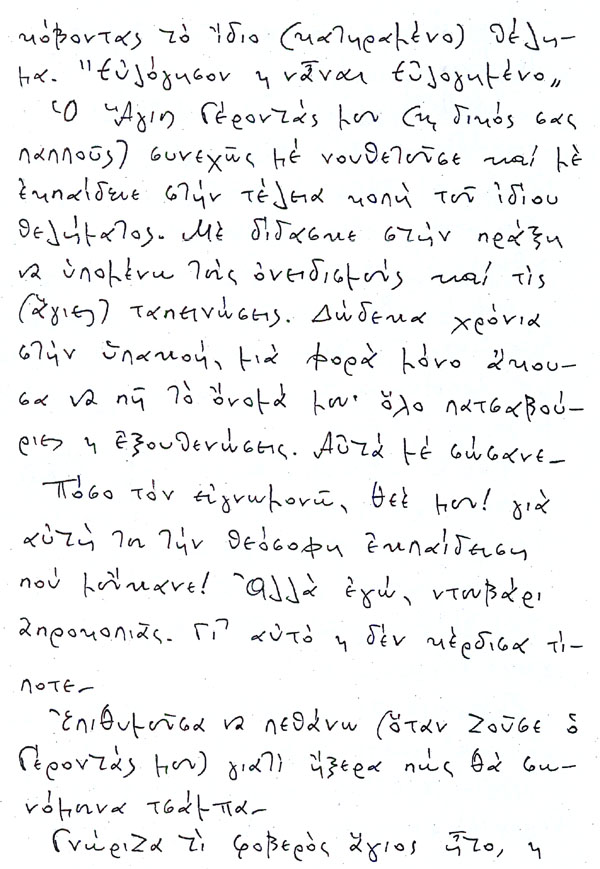 κόβοντας τὸ ἴδιο (κατηραμένο) θέλη-
μα. "Εὐλόγησον κ νἆναι εὐλογημένο„
Ὁ Ἅγιος Γέροντάς μου (κ δικός σας
παπποῦς) συνεχῶς μὲ νουθετοῦσε καί μὲ
ἐκπαίδευε στήν τέλεια κοπή τοῦ ἰδίου
θελήματος. Μὲ δίδασκε στήν πράξη
νὰ ὑπομένω τούς ὀνειδισμούς καί τὶς
(ἅγιες) ταπεινώσεις. Δώδεκα χρόνια
στήν ὑπακοή, μιὰ φορὰ μόνο ἄκου-
σα νὰ πῆ τὸ ὄνομά μου· ὅλο πατσαβού-
ριες κ ἐξουθενώσεις. Αὐτά μέ σώσανε_
Πόσο τόν εὐγνωμονῶ, Θεέ μου! γιὰ
αὐτή του τήν θεόσοφη ἐκπαίδευση
πού μοὔκανε! Ἀλλὰ ἐγώ, ντουβάρι
ξηροκοπιᾶς. Γι᾽ αὐτὸ κ δέν κέρδισα τί-
ποτε_
Ἐπιθυμοῦσα νὰ πεθάνω (ὅταν ζοῦσε ὁ
Γέροντάς μου) γιατὶ ἤξερα πώς θὰ οικο-
νόμουνα τσάμπα_
Γνώριζα τὶ φοβερὸς ἅγιος ἦτο, κ